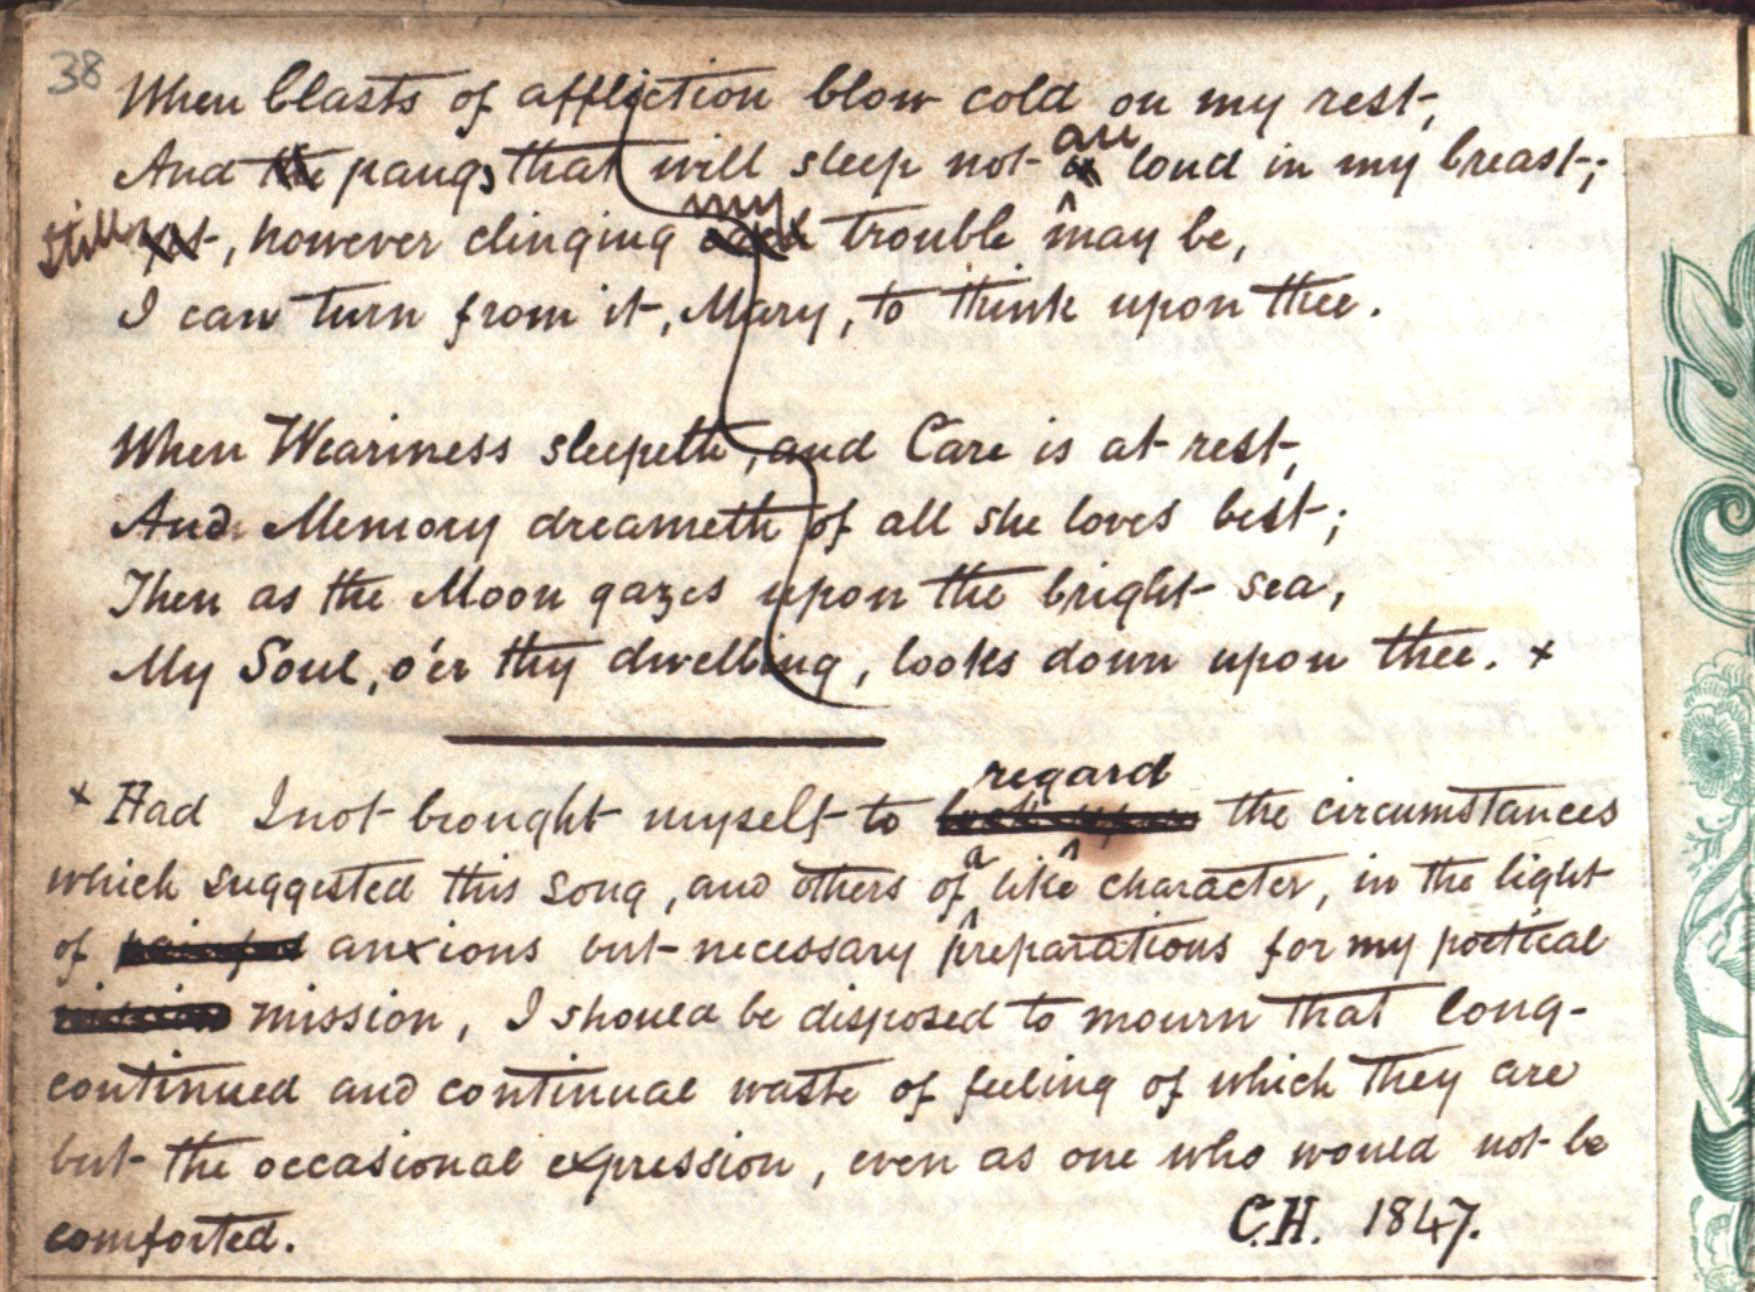 38
When blasts of affliction blow cold on my rest,
And the pangs that will sleep not are loud in my breast;
Still, however clinging my trouble may be,
I can turn from it, Mary, to think upon thee.
When Weariness sleepeth, and Care is at rest,
And Memory dreameth of all she loves best;
Then as the Moon gazes upon the bright sea,
My Soul, o'er thy dwelling, looks down upon thee. +
+ Had I not brought myself to regard the circumstances
which suggested this song, and others of a like character, in the light
of painful anxious but necessary preparations for my poetical
mission, I should be disposed to mourn that long-
continued and continual waste of feeling of which they are
but the occasional expression, even as one who would not be
comforted.
C.H. 1847.